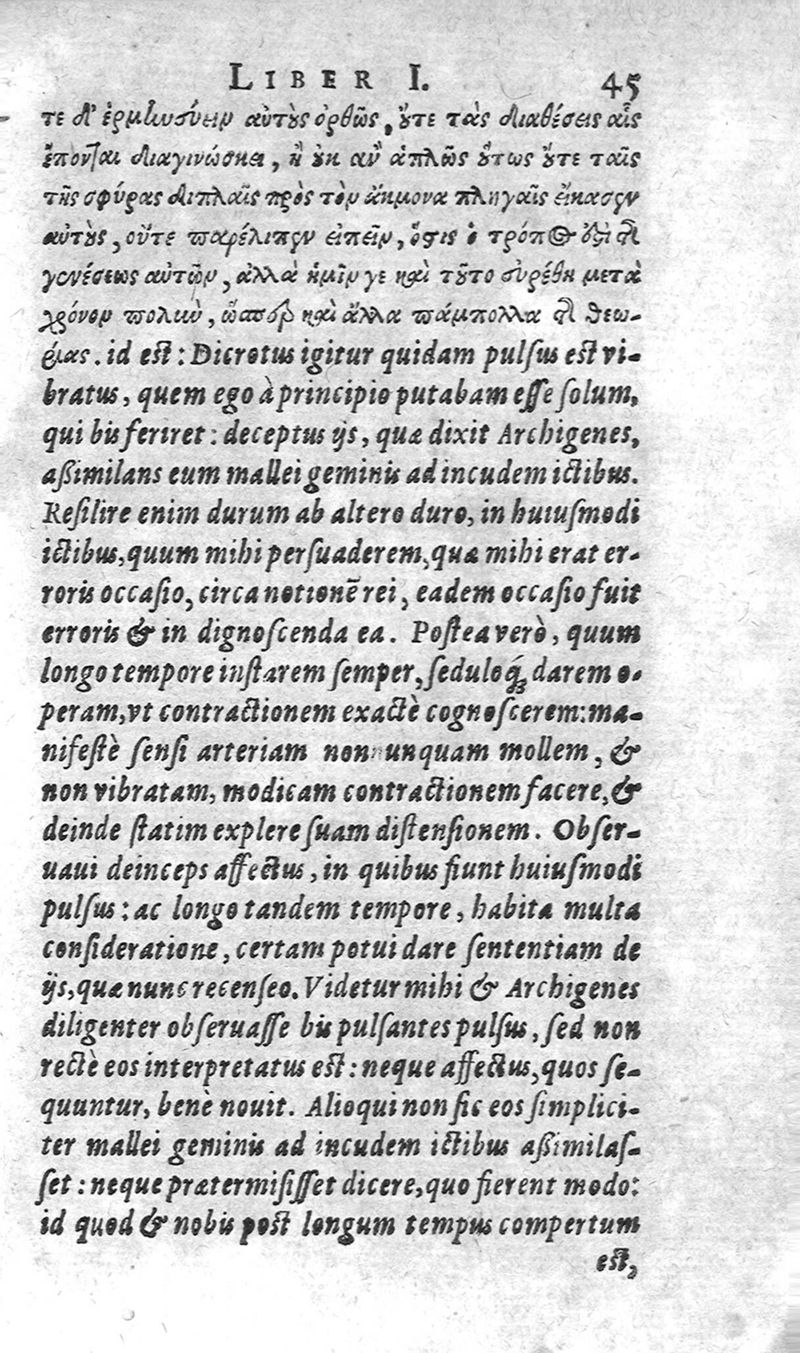 LIBER I. 45
τε δ' ἑρμηνεύειν αὐτοὺς ὀρθῶς, οὔτε τὰς διαθέσεις αἷς
ἕπονται διαγινώσκει, ἢ οὐκ ἂν ἁπλῶς οὕτως οὔτε ταῖς
τῆς σφύρας διπλαῖς πρὸς τὸν ἄκμονα πληγαῖς εἴκασεν
αὐτοὺς, οὔτε παρέλιπεν εἰπεῖν, ὅστις ὁ τρόπος ἐστὶ τῆς
γενέσεως αὐτῶν, ἀλλὰ ἡμῖν γε καὶ τοῦτο εὑρέθη μετὰ
χρόνον πολὺν, ὥσπερ καὶ ἄλλα πάμπολλα τῆς θεω-
ρίας. id est: Dicrotus igitur quidam pulſus est vi-
bratus, quem ego à principio putabam eſſe ſolum,
qui bis feriret: deceptus ijs, quæ dixit Archigenes,
aßimilans eum mallei geminis ad incudem ictibus.
Reſilire enim durum ab altero duro, in huiuſmodi
ictibus, quum mihi perſuaderem, quæ mihi erat er-
roris occaſio, circa notionē rei, eadem occaſio fuit
erroris & in dignoſcenda ea. Poſtea verò, quum
longo tempore inſtarem ſemper, ſeduloq́; darem o-
peram, vt contractionem exactè cognoſcerem: ma-
nifeſtè ſenſi arteriam nonnunquam mollem, &
non vibratam, modicam contractionem facere, &
deinde ſtatim explere ſuam diſtenſionem. Obſer-
uaui deinceps affectus, in quibus fiunt huiuſmodi
pulſus: ac longo tandem tempore, habita multa
conſideratione, certam potui dare ſententiam de
ijs, quæ nunc recenſeo. Videtur mihi & Archigenes
diligenter obſeruaſſe bis pulſantes pulſus, ſed non
rectè eos interpretatus eſt: neque affectus, quos ſe-
quuntur, benè nouit. Alioqui non ſic eos ſimplici-
ter mallei geminis ad incudem ictibus aßimilaſ-
ſet: neque prætermiſiſſet dicere, quo fierent modo:
id quod & nobis poſt longum tempus compertum
eſt,